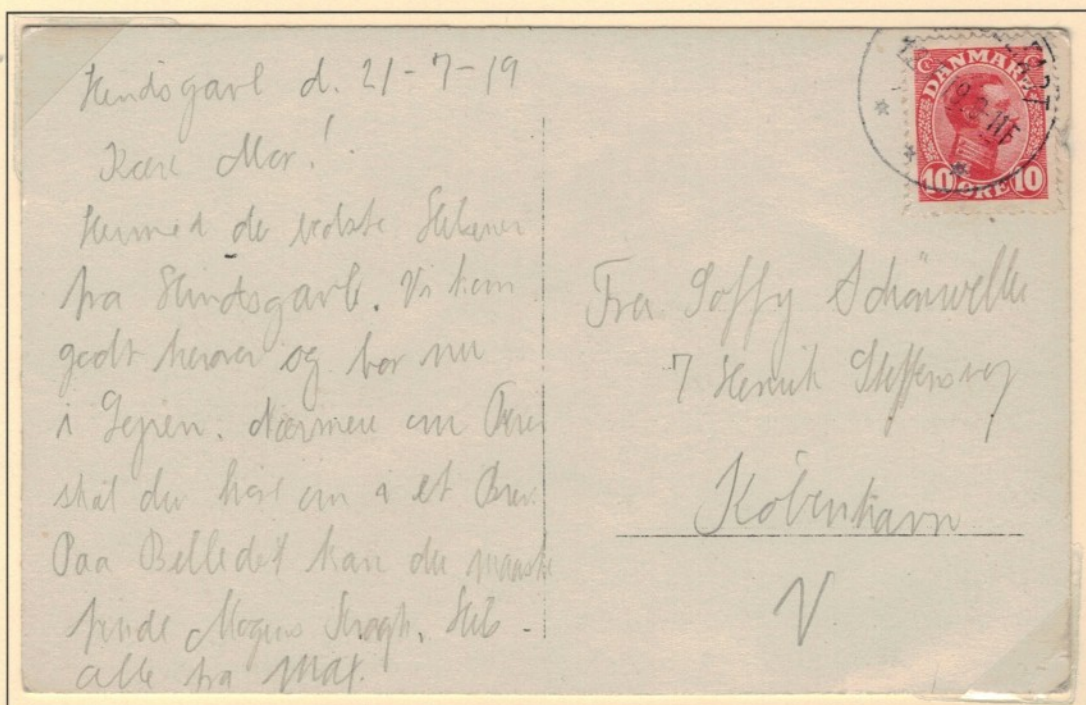 Hindsgavl d. 21-7-19
Kære Mor!
Hermed de bedste Hilsner
fra Hindsgavl. Vi kom
godt herover og bor nu
i Lejren. Nærmere om
skal du høre om i et Brev.
Paa Billedet kan du maaske
finde Mogens Krogh. Hils
alle fra
DANMARK
10 ØRE 10
Fru Soffy Schönweller
7 Henrik Steffensvej
København
V